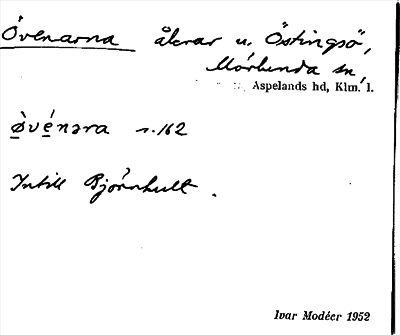 Övenarna åkrar u. Östingsö,
Mörlunda sn,
Aspelands hd, Klm. l.
ø̀vénəra s. 162
Intill Björnhult.
Ivar Modéer 1952